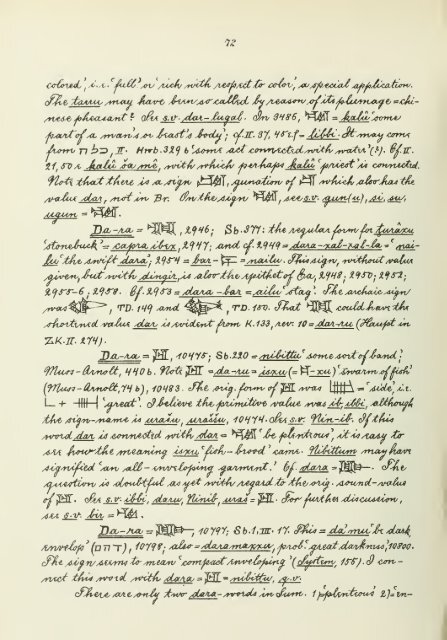 72
colored', i.e. 'full' or 'rich with respect to color', a special application.
The tarru may have been so called by reason of its plumage = chi-
nese pheasant? See s.v. dar-lugal. In 3486, = kalû 'some
part of a man's or beast's body'; cf. II. 37, 45 e.f = libbi. It may come
from כלה, II. Hwb. 329 b 'some act connected with water' (?). Cf. II.
21, 50 c kalû ša mê, with which perhaps kalû 'priest' is connected.
Note that there is a sign , gunation of which also has the
value dar, not in Br. On the sign , see s.v. gun(u), si, su,
ugun =
Da-ra = , 2946; Sb. 377: the regular form for turâxu
'stonebuck' = capra ibex, 2947; and cf. 2949 = dara-xal-xal-la = 'nai-
lu' the swift dara; 2954 = bar- = nailu. This sign, without value
given, but with dingir, is also the epithet of Ea, 2948; 2950; 2952;
2955-6; 2958. Cf. 2953 = dara-bar = ailu 'stag'. The archaic sign
was , TD. 149 and , TD. 150. That could have the
shortened value dar is evident from K. 133, rev. 10 = dar-ru (Haupt in
ZK. II. 274).
Da-ra = , 10475; Sb. 220 = nibittu 'some sort of band';
Muss-Arnolt, 440 b. Note = da-ru = isxu (= -xu) 'swarm of fish'
(Muss-Arnolt, 74 b), 10483. The orig. form of was = 'side', i.e.
+ 'great'. I believe the primitive value was ib, ibbi, although
the sign-name is urašu, uraššu, 10474. See s.v. Nin-ib. If this
word dar is connected with dar = 'be plenteous', it is easy to
see how the meaning isxu 'fish-brood' came. Nibittum may have
signified 'an all-enveloping garment.' Cf. dara = . The
question is doubtful as yet with regard to the orig. sound-value
of . See s.v. ibbi, daru, Ninib, uraš = . For further discussion,
see s.v. bir = .
Da-ra = , 10797; Sb. 1, III. 17. This = da'mu 'be dark,
envelop' (דהם), 10798; also = daramaxxu, prob. 'great darkness,' 10800.
The sign seems to mean 'compact enveloping' (System, 155). I con-
nect this word with dara = = nibittu, q.v.
There are only two dara-words in Sum. 1) 'plenteous' 2) 'en-